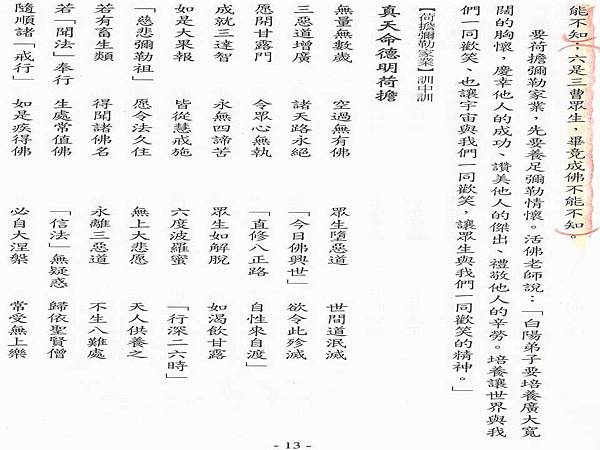 能不知；六是三曹眾生，畢竟成佛不能不知。
要荷擔彌勒家業，先要養足彌勒情懷。活佛老師說：「白陽弟子要培養廣大寬
闊的胸懷，慶幸他人的成功、讚美他人的傑出、禮敬他人的辛勞。培養讓世界與我
們一同歡笑、也讓宇宙與我們一同歡笑，讓眾生與我們一同歡笑的精神。」
【荷擔彌勒家業】訓中訓
真天命德明荷擔
無量無數歲 空過無有佛 眾生墮惡道 世間道泯滅
三惡道增廣 諸天路永絕 「今日佛興世」 欲令此殄滅
愿開甘露門 令眾心無執 「直修八正路 自性來自渡」
成就三達智 永無四諦苦 眾生如解脫 如渴飲甘露
如是大果報 皆從慈戒施 六度波羅蜜 「行深二六時」
「慈悲彌勒祖」 愿令法久住 無上大悲愿 天人供養之
若有畜生類 得聞諸佛名 永離三惡道 不生八難處
若「聞法」奉行 生處常值佛 「信法」無疑惑 歸依聖賢僧
隨順諸「戒行」 如是疾得佛 必自大涅槃 常受無上樂
- 13 -